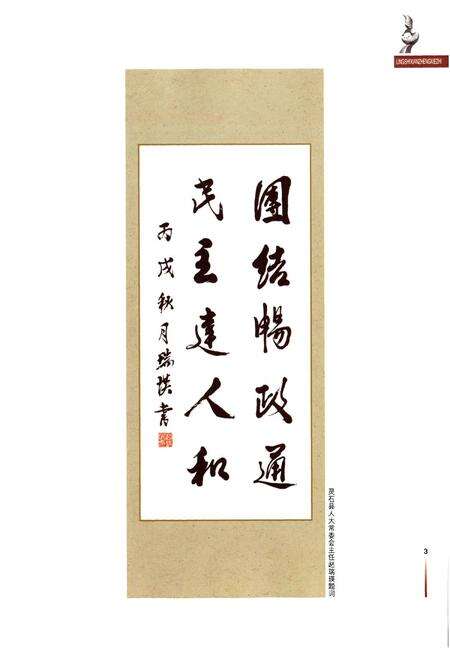 LINGSHIXIANZHENGXIEZHI
團结暢政通
民主達人和
丙戌秋月瑞琪書
灵石县人大常委会主任赵瑞琪题词
3